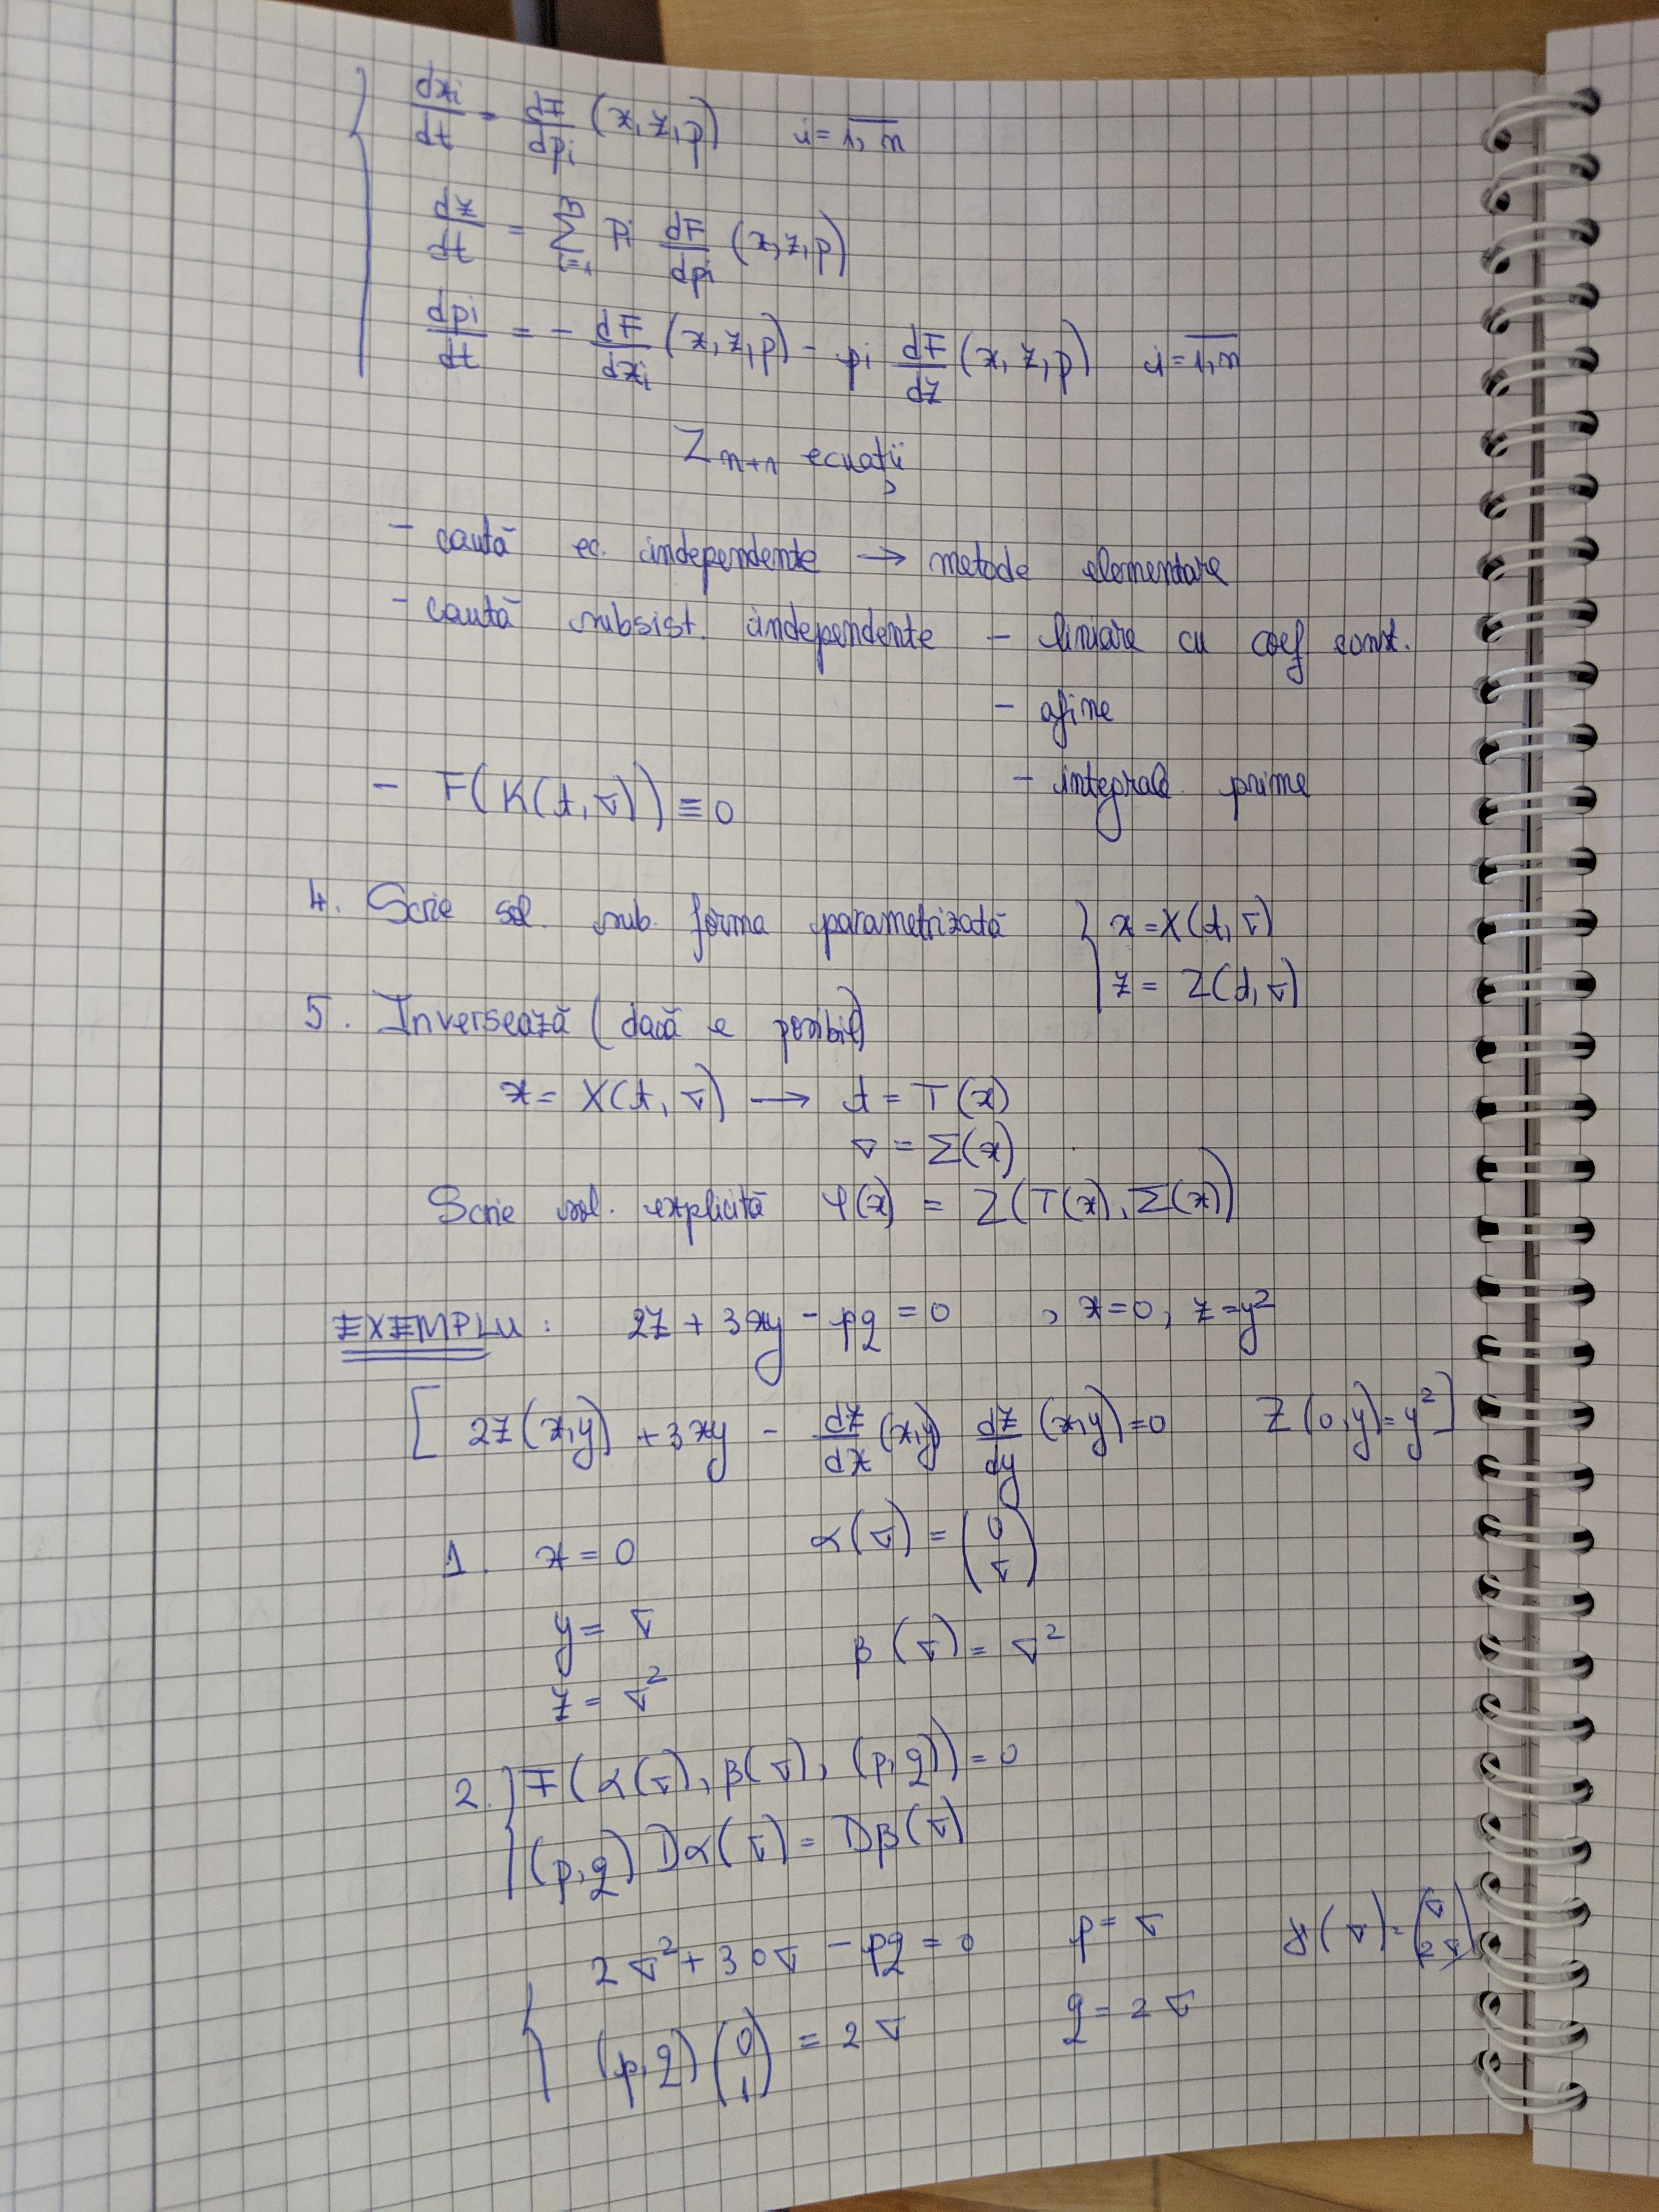 dxi/dt = dF/dpi (x, z, p) i = 1, n
dz/dt = Σ i=1 n pi dF/dpi (x, z, p)
dpi/dt = - dF/dxi (x, z, p) - pi dF/dz (x, z, p) i = 1, n
2n+1 ecuații
- caută ec. independente → metode elementare
- caută subsist. independente - liniare cu coef const.
- afine
- integrale prime
- F(K(t, σ)) ≡ 0
4. Scrie sol. sub. forma parametrizată { x = X(t, σ)
z = Z(t, σ)
5. Inversează (dacă e posibil)
x = X(t, σ) → t = T(x)
σ = Σ(x)
Scrie sol. explicită φ(x) = Z(T(x), Σ(x))
EXEMPLU: 2z + 3xy - pq = 0 , x=0, z=y²
[ 2z(x,y) + 3xy - dz/dx (x,y) dz/dy (x,y) = 0 z(0,y) = y² ]
1. x = 0 α(σ) = (0 σ)
y = σ β(σ) = σ²
z = σ²
2. { F(α(σ), β(σ), (p,q)) = 0
(p,q) Dα(σ) = Dβ(σ)
{ 2σ² + 3·0σ - pq = 0 p = σ γ(σ) = (σ 2σ)
(p,q) (0 1) = 2σ q = 2σ